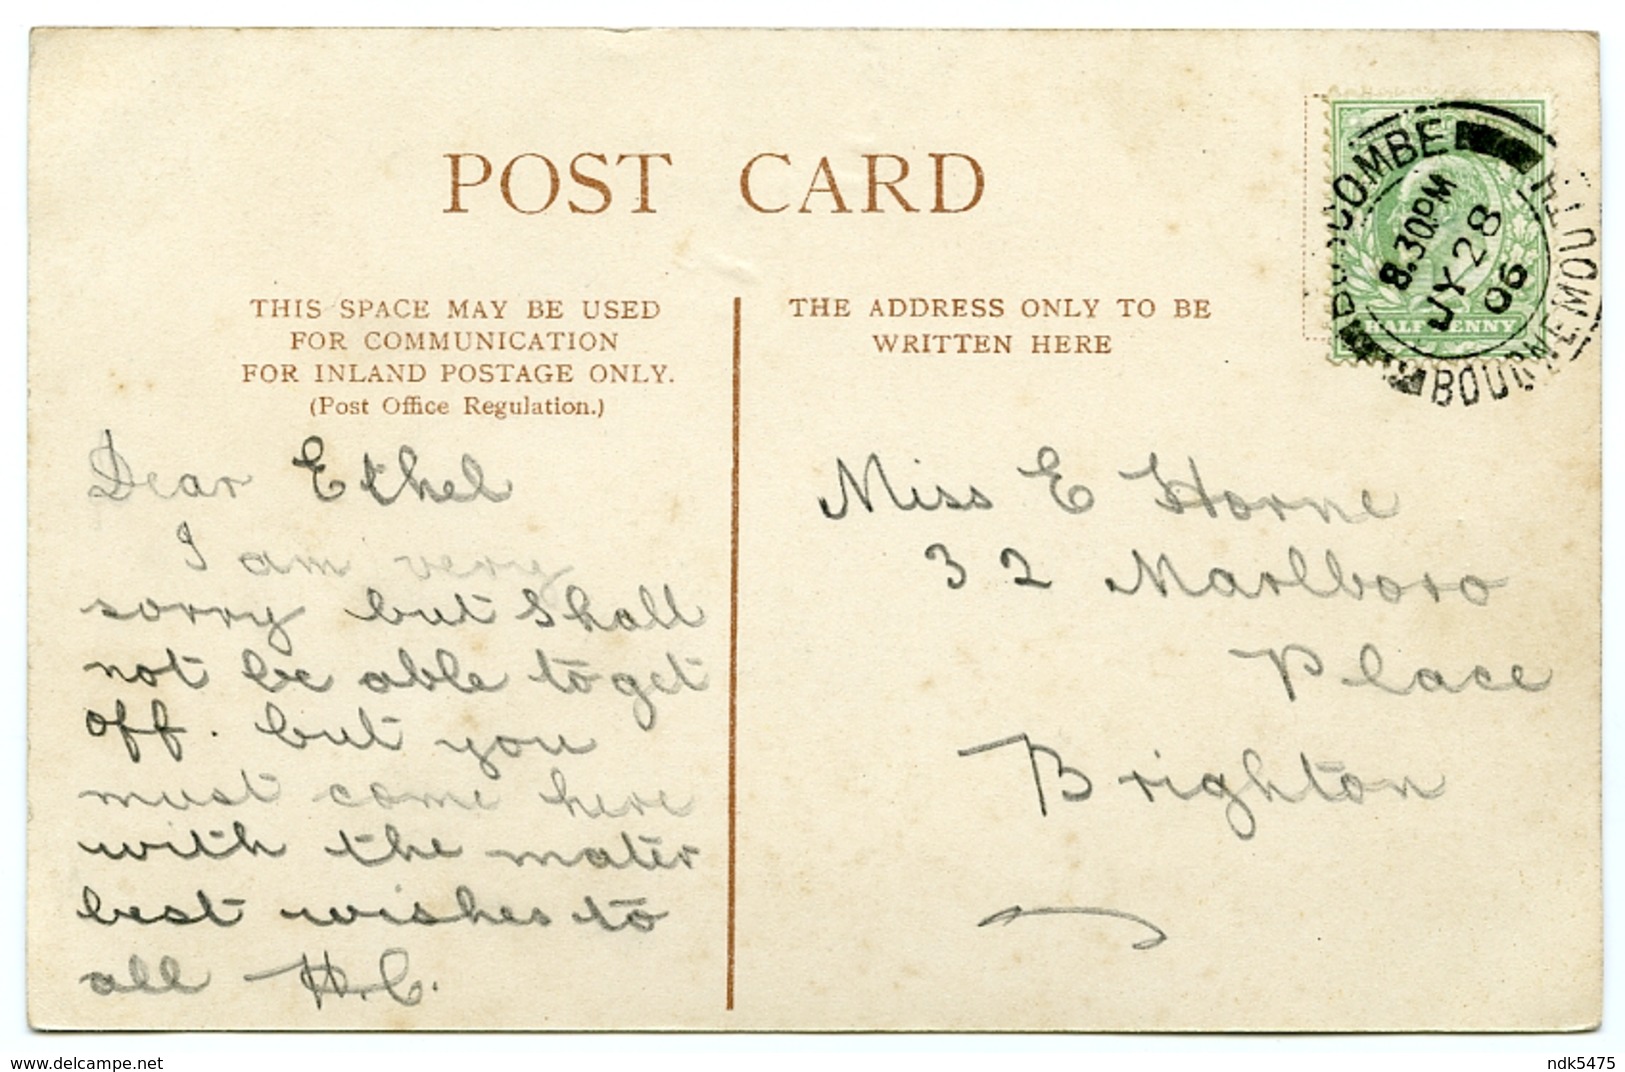 POST CARD
THIS SPACE MAY BE USED
FOR COMMUNICATION
FOR INLAND POSTAGE ONLY.
(Post Office Regulation.)
THE ADDRESS ONLY TO BE
WRITTEN HERE
BOURNEMOUTH
8.30PM
JY 28
06
HALF PENNY
Dear Ethel
I am very
sorry but Shall
not be able to get
off. but you
must come here
with the mater
best wishes to
all H.C.
Miss E Horne
32 Marlboro
Place
Brighton
www.delcampe.net
ndk5475